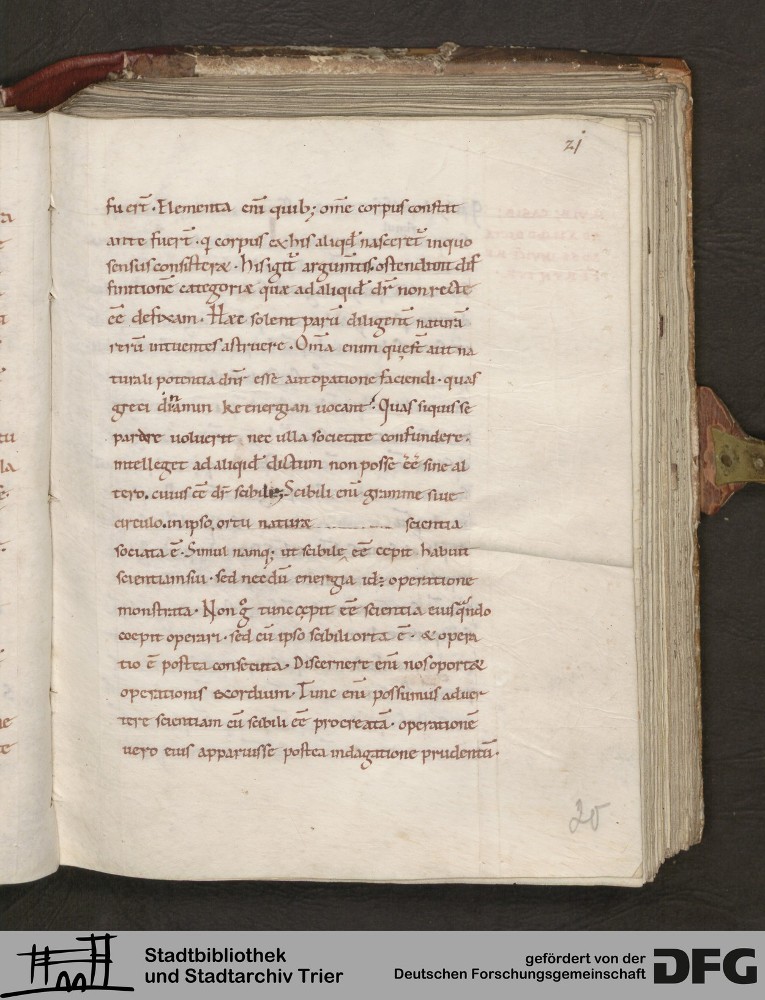 21
fuerī̄t · Elementa enī quib; om̄e corpus constat
ante fuer̄t · q̄ corpus ex his aliqd̄ nasceret̄ in quo
sensus consisteræ · His igit̄ argum̄tis ostendunt dif
finitionē categoriæ quæ ad aliqid̄ dr̄ non recte
ēē defixam · Hæc solent parū diligent̄ naturā
rerū intuentes astruere · Om̄a enim quę s̄t aut na
turali potentia dnr̄ esse aut opatione faciendi · quas
greci dinamin ke energian uocant · Quas siquis se
parare uoluerit nec ulla societate confundere ·
intelleget ad aliqid̄ dictum non posse ēē sine al
tero. cuius ēē dr̄ scibile; Scibili enī gramme siue
circulo. in ipso. ortu naturæ scientia
sociata ē · Simul namq; ut scibile ēē cępit habuit
scientiam sui · sed necdū energia id; operatione
monstrata · Non g̊ tunc cępit ēē scientia eius qn̄do
coepit operari · sed cū ipso scibili orta ē · & opera
tio ē postea consecuta · Discernere enī nos oport&
operationis exordium · Tunc enī possumus aduer
tere scientiam cū scibili ēē procreatā · operationē
uero eius apparuisse postea indagatione prudentū ·
20
Stadtbibliothek
und Stadtarchiv Trier
gefördert von der
Deutschen Forschungsgemeinschaft
DFG